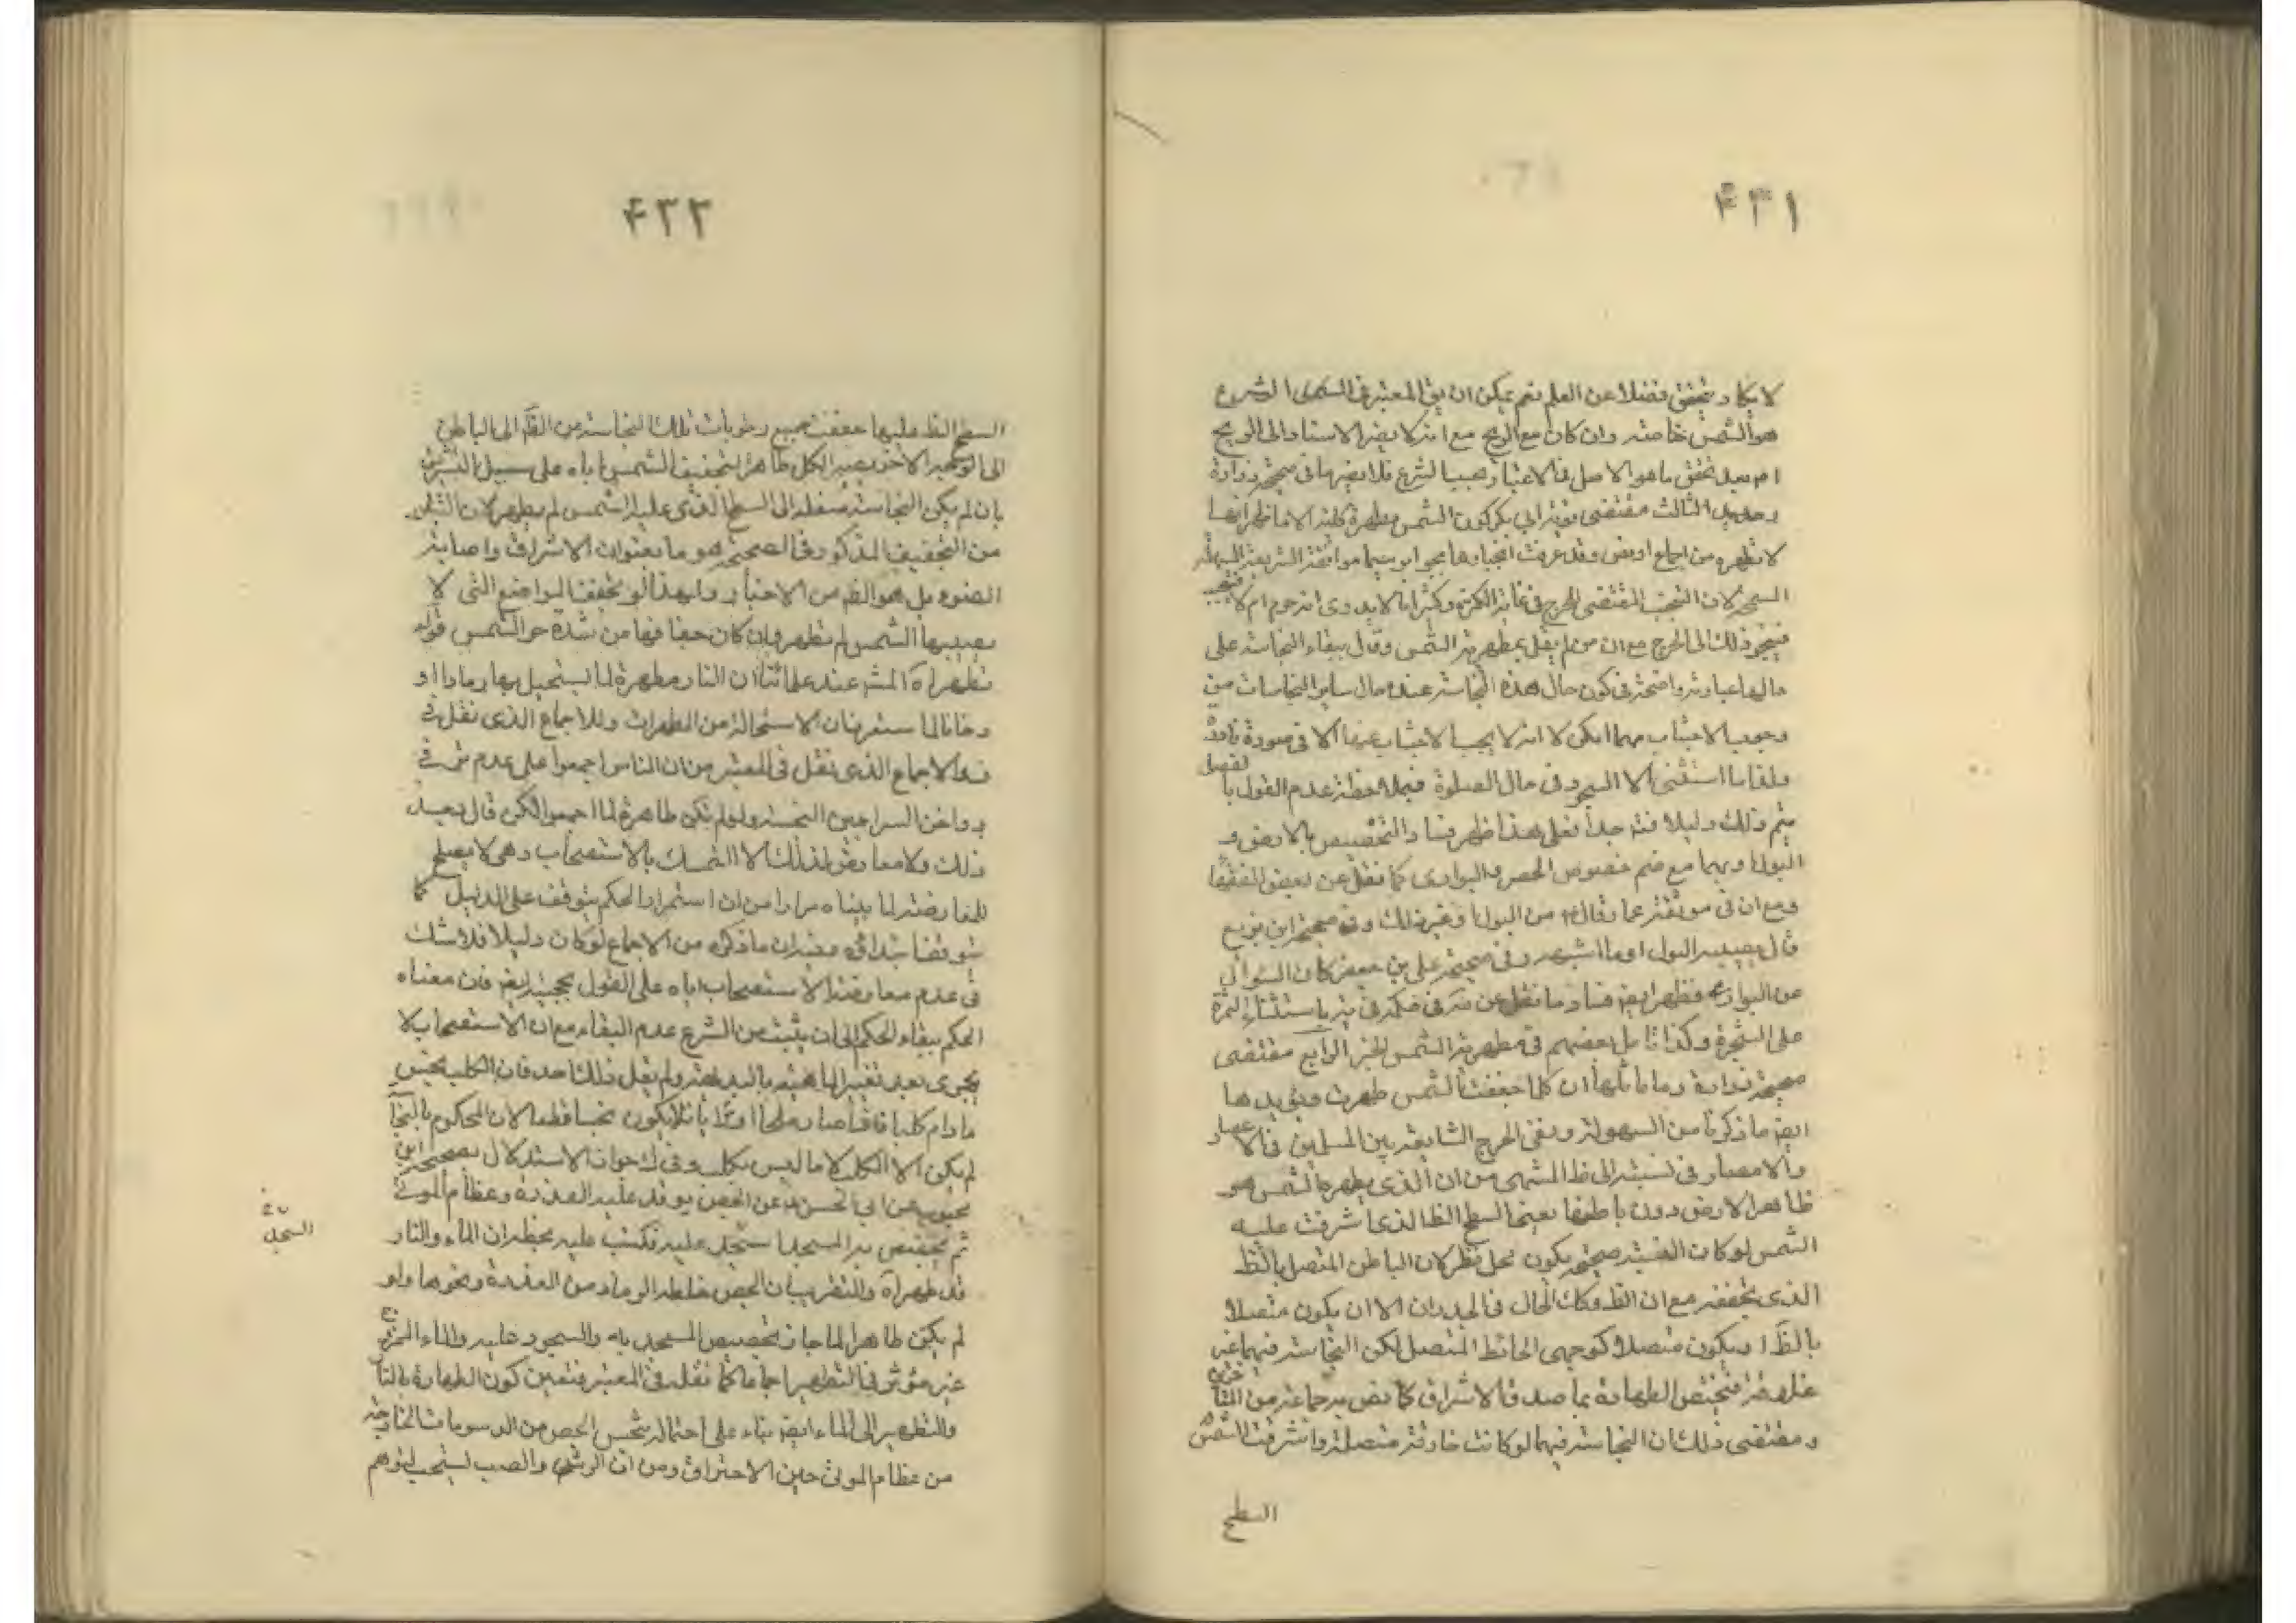 ۴۳۱
لا يكاد يتحقق فضلا عن العلم نعم يمكن ان يق المعتبر في
هو الشمس خاصة وان كان مع الريح مع انه لا يضر الاستناد الى الريح
بعد تحقق ما هو الاصل في الاعتبار بحسب الشرع فلا في صحيحة زرارة
الثالث مقتضى كون الشمس مطهرة
لا تطهره من اجماع او نص وقد عرفت موافقة الشريعة السهلة
السمحة لان التجنب المقتضى للحرج في غاية الكثرة وكثيرا ما لا يدرى انه حرم ام لا
فينجر ذلك الى الحرج مع ان من لم يقل بمطهرية الشمس وقال ببقاء النجاسة على
حالها عبارته واضحة في كون حال هذه النجاسة عنده حال ساير النجاسات من
وجوب الاجتناب مهما امكن لا انه لا يجب الاجتناب عنها الا في صورة نادرة
ولقد ما استثنى الا السجود في حال الصلوة فبملاحظة عدم القول بالفصل
يتم ذلك دليلا فتم جدا فعلى هذا ظهر فساد التخصيص بالارض و
البول او بهما مع ضم خصوص الحصر والبوارى كما نقل عن بعض الفقهاء
ومع ان في موثقة عمار قال من البول او غير ذلك وفي صحيحة ابن بزيع
قال يصيبه البول او ما اشبهه وفي صحيحة على بن جعفر كان السؤال
عن البوارى فظهر ايضا فساد ما نقل عن باستثناء الثمرة
على الشجرة وكذا تامل بعضهم في مطهرية الشمس الرابع مقتضى
صحيحة زرارة وما ان كلما جففته الشمس طهرت ويؤيدها
ايضا ما ذكرنا من السهولة ونفى الحرج الشايعة بين المسلمين في الاعصار
والامصار في نسبته الى المنتهى من ان الذى يطهره الشمس هو
ظاهر الارض دون باطنها يعنى السطح الظ الذى اشرقت عليه
الشمس لو كانت النسبة صحيحة يكون محل نظر لان الباطن المتصل بالظ
الذى تجففه مع ان الظ وكك الحال في الجدران الا ان يكون متصلا
بالظ او يكون متصلا كوجهى الحائط المتصل لكن النجاسة فيهما غير
فتختص الطهارة بما صدق الاشراق كما نص به جماعة من المتاخرين
ومقتضى ذلك ان النجاسة فيهما لو كانت خارقة متصلة واشرقت الشمس
السطح
۴۳۲
السطح الظ عليها جففت جميع رطوبات تلك النجاسة من الظ الى الباطن
الى الوجه الاخر يصير الكل طاهرا لتجفيف الشمس اياه على سبيل التشريق
بان لم يكن النجاسة متصلة الى السطح الذى عليه الشمس لم يطهر لان المتبادر
من التجفيف المذكور في الصحيحة هو ما بعنوان الاشراق واصابة
الضوء بل هو الظ من الاخبار ولهذا لو تجفف المواضع التى لا
يصيبها الشمس لم تطهر وان كان جفافها من شدة حر الشمس قوله
تطهر اه المشهور عند علمائنا ان النار مطهرة لما يستحيل بها رمادا او
دخانا لما ستعرف ان الاستحالة من المطهرات وللاجماع الذى نقل في
والاجماع الذى نقل في المعتبر من ان الناس اجمعوا على عدم في
دواخن السراجين النجسة ولو لم تكن طاهرة لما اجمعوا لكن قال بعيد
ذلك ولا معارض لذلك الا التمسك بالاستصحاب وهى لا يصلح
للمعارضة لما بيناه مرارا من ان استمرار الحكم يتوقف على الدليل كما
يتوقف ابتداؤه وفيه ان ما ذكره من الاجماع لو كان دليلا فلا شك
في عدم معارضة الاستصحاب اياه على القول بحجيته ايضا فان معناه
الحكم ببقاء الحكم الى ان يثبت من الشرع عدم البقاء مع ان الاستصحاب لا
يجرى بعد تغير الماهية بالبديهة ولم يقل بذلك احد فان الكلب نجس
ما دام كلبا فاذا صار ملحا او ترابا فلا يكون نجسا قطعا لان المحكوم بالنجاسة
لم يكن الا الكلب لا ما ليس بكلب وفي جواز الاستدلال بصحيحة ابن
محبوب عن ابى الحسن عن الجص يوقد عليه العذرة وعظام الموتى
ثم يجصص به المسجد ايسجد عليه فكتب عليه بخطه ان الماء والنار
قد طهراه والتقريب ان الجص خلطه الرماد من العذرة ونحوها ولو
لم يكن طاهرا لما جاز تجصيص المسجد به والسجود عليه والماء الممزوج
غير مؤثر في التطهير اجماعا كما نقله في المعتبر فتعين كون الطهارة بالنار
والتطهير الى الماء ايضا بناء على احتمال تنجس الجص من الدسومات الخارجة
من عظام الموتى حين الاحتراق ومن ان الرش والصب يستحب لتوهم
السجد